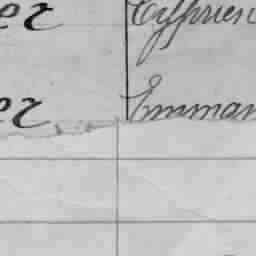 er Cyprien
er Emman